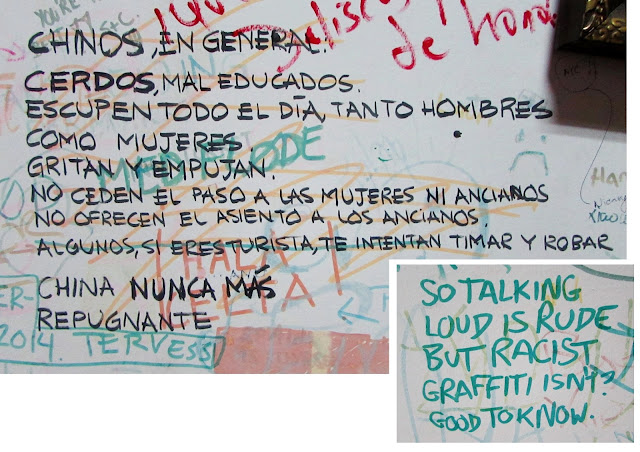 YOU'RE
de honor
CHINOS, EN GENERAL.
CERDOS, MAL EDUCADOS.
ESCUPEN TODO EL DÍA, TANTO HOMBRES
COMO MUJERES.
GRITAN Y EMPUJAN.
NO CEDEN EL PASO A LAS MUJERES NI ANCIANOS
NO OFRECEN EL ASIENTO A LOS ANCIANOS
ALGUNOS, SI ERES TURISTA, TE INTENTAN TIMAR Y ROBAR
CHINA NUNCA MÁS
REPUGNANTE
2014. TERVESS
SO TALKING
LOUD IS RUDE
BUT RACIST
GRAFFITI ISN'T?
GOOD TO KNOW.